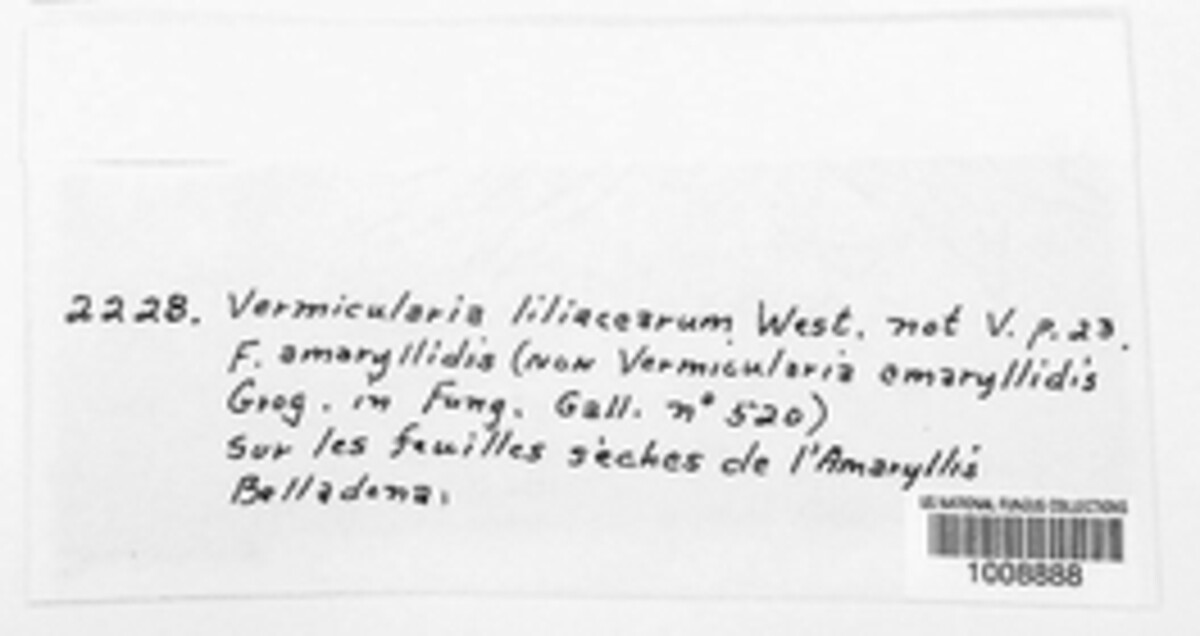 2228. Vermicularia liliacearum West. not V. p. 23.
F. amaryllidis (non Vermicularia amaryllidis
Grog. in Fung. Gall. n° 520)
Sur les feuilles sèches de l'Amaryllis
Belladona.
US NATIONAL FUNGUS COLLECTIONS
1008888